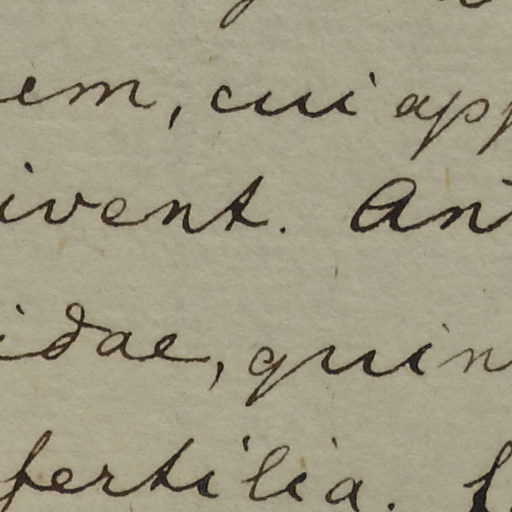 em, cui app
ivent. An
idae, quin
fertilia. f